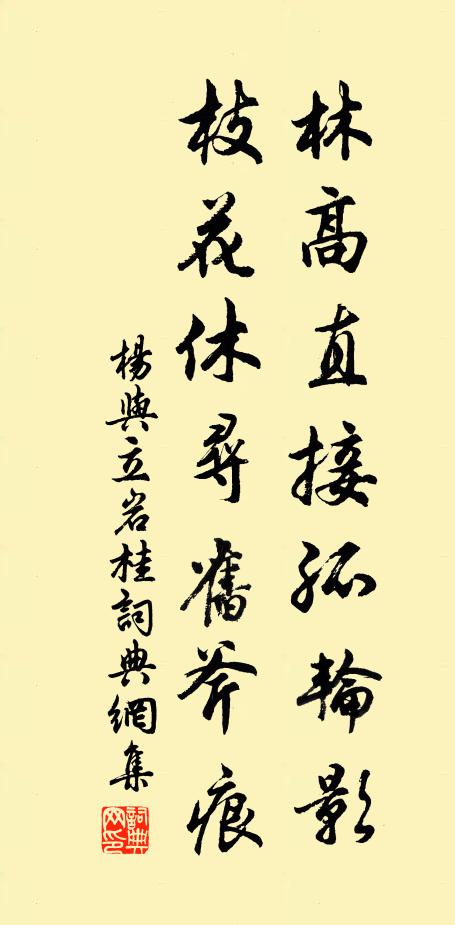 林高直接孤輪影
枝花休尋舊斧痕
楊與立岩桂詞典網集
詞典網印